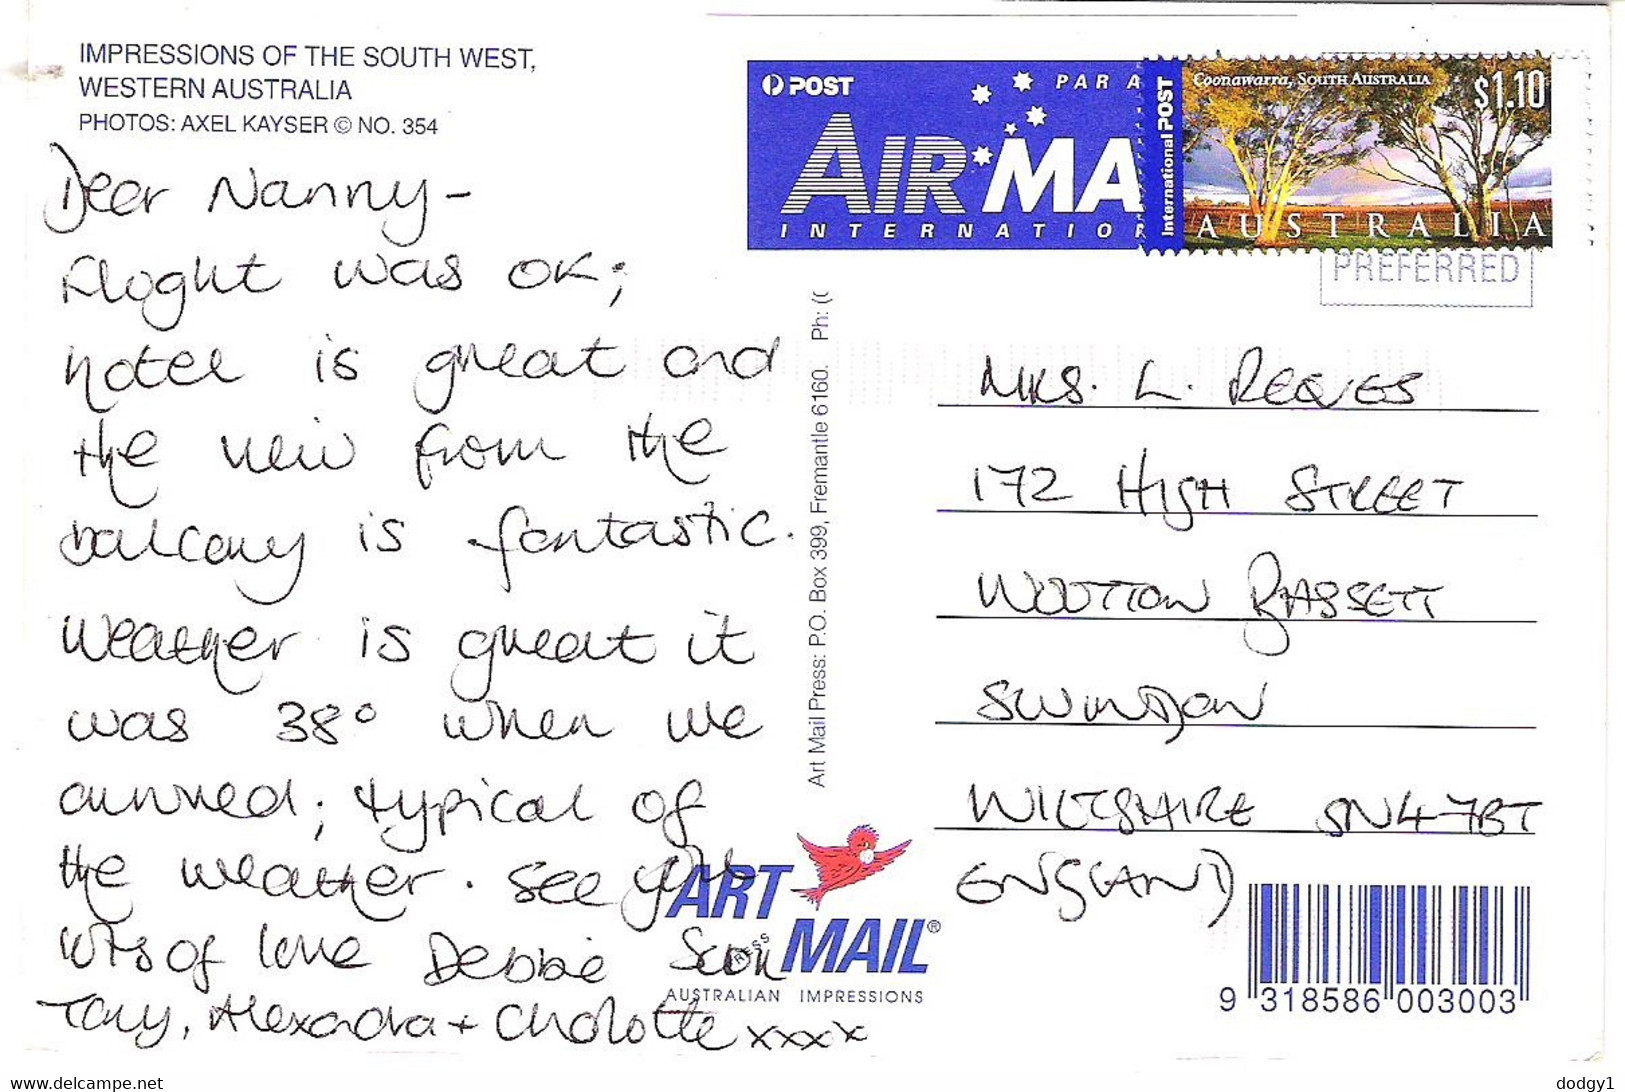 IMPRESSIONS OF THE SOUTH WEST,
WESTERN AUSTRALIA
PHOTOS: AXEL KAYSER © NO. 354
Dear Nanny -
Flight was OK;
hotel is great and
the view from the
balcony is fantastic.
Weather is great it
was 38° when we
arrived; typical of
the weather. See you
lots of love Debbie Soon
Tony, Alexandra + Charlotte xxxx
POST
PAR A
AIR MA
INTERNATIO
International POST
Coonawarra, SOUTH AUSTRALIA
$1.10
AUSTRALIA
PREFERRED
Art Mail Press: P.O. Box 399, Fremantle 6160. Ph: (
MRS. L. REEVES
172 HIGH STREET
WOOTTON BASSETT
SWINDON
WILTSHIRE SN4 7BT
ENGLAND
ART
PRESS
MAIL®
AUSTRALIAN IMPRESSIONS
9 318586 003003
www.delcampe.net
dodgy1